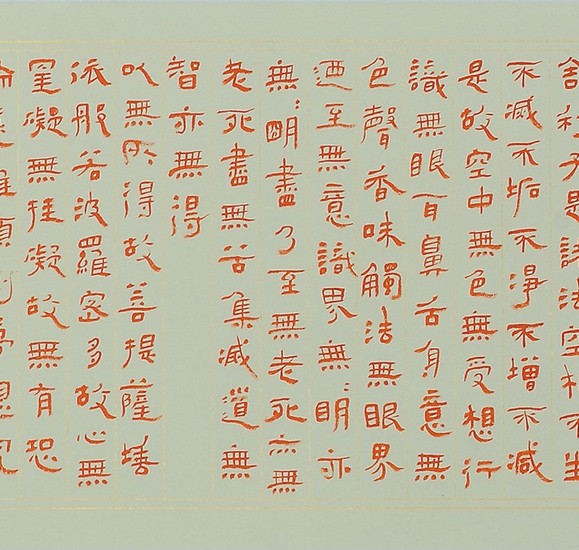 舍利子是諸法空相不生
不滅不垢不淨不增不減
是故空中無色無受想行
識無眼耳鼻舌身意無
色聲香味觸法無眼界
迺至無意識界無〻明亦
無〻明盡乃至無老死亦無
老死盡無苦集滅道無
智亦無得
以無所得故菩提薩埵
依般若波羅密多故心無
罣礙無挂礙故無有恐
遠離顛倒夢想究